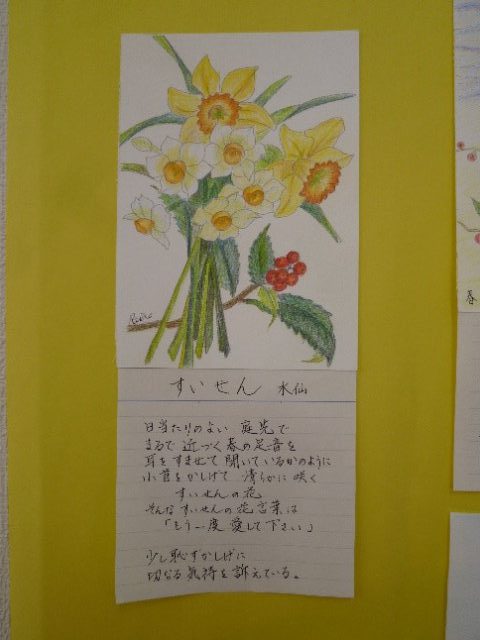 すいせん 水仙
日当たりのよい 庭先で
まるで 近づく春の足音を
耳をすませて 聞いているかのように
小首をかしげて 清らかに 咲く
すいせんの花
そんな すいせんの花言葉は
「もう一度 愛して下さい」
少し恥ずかしげに
切なる気持を訴えている。
春